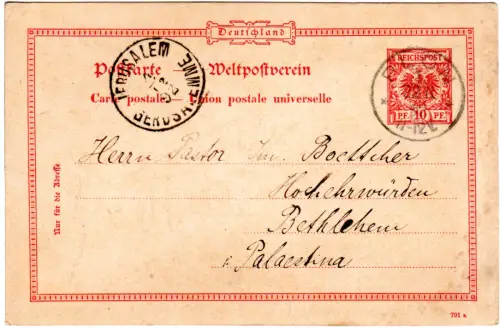 Deutschland
Postkarte — Weltpostverein
Carte postale — Union postale universelle
REICHSPOST
PF. 10 PF.
JERUSALEM
Herrn Pastor Boettcher
Hochehrwürden
Bethlehem
Palaestina
Nur für die Adresse
791 a